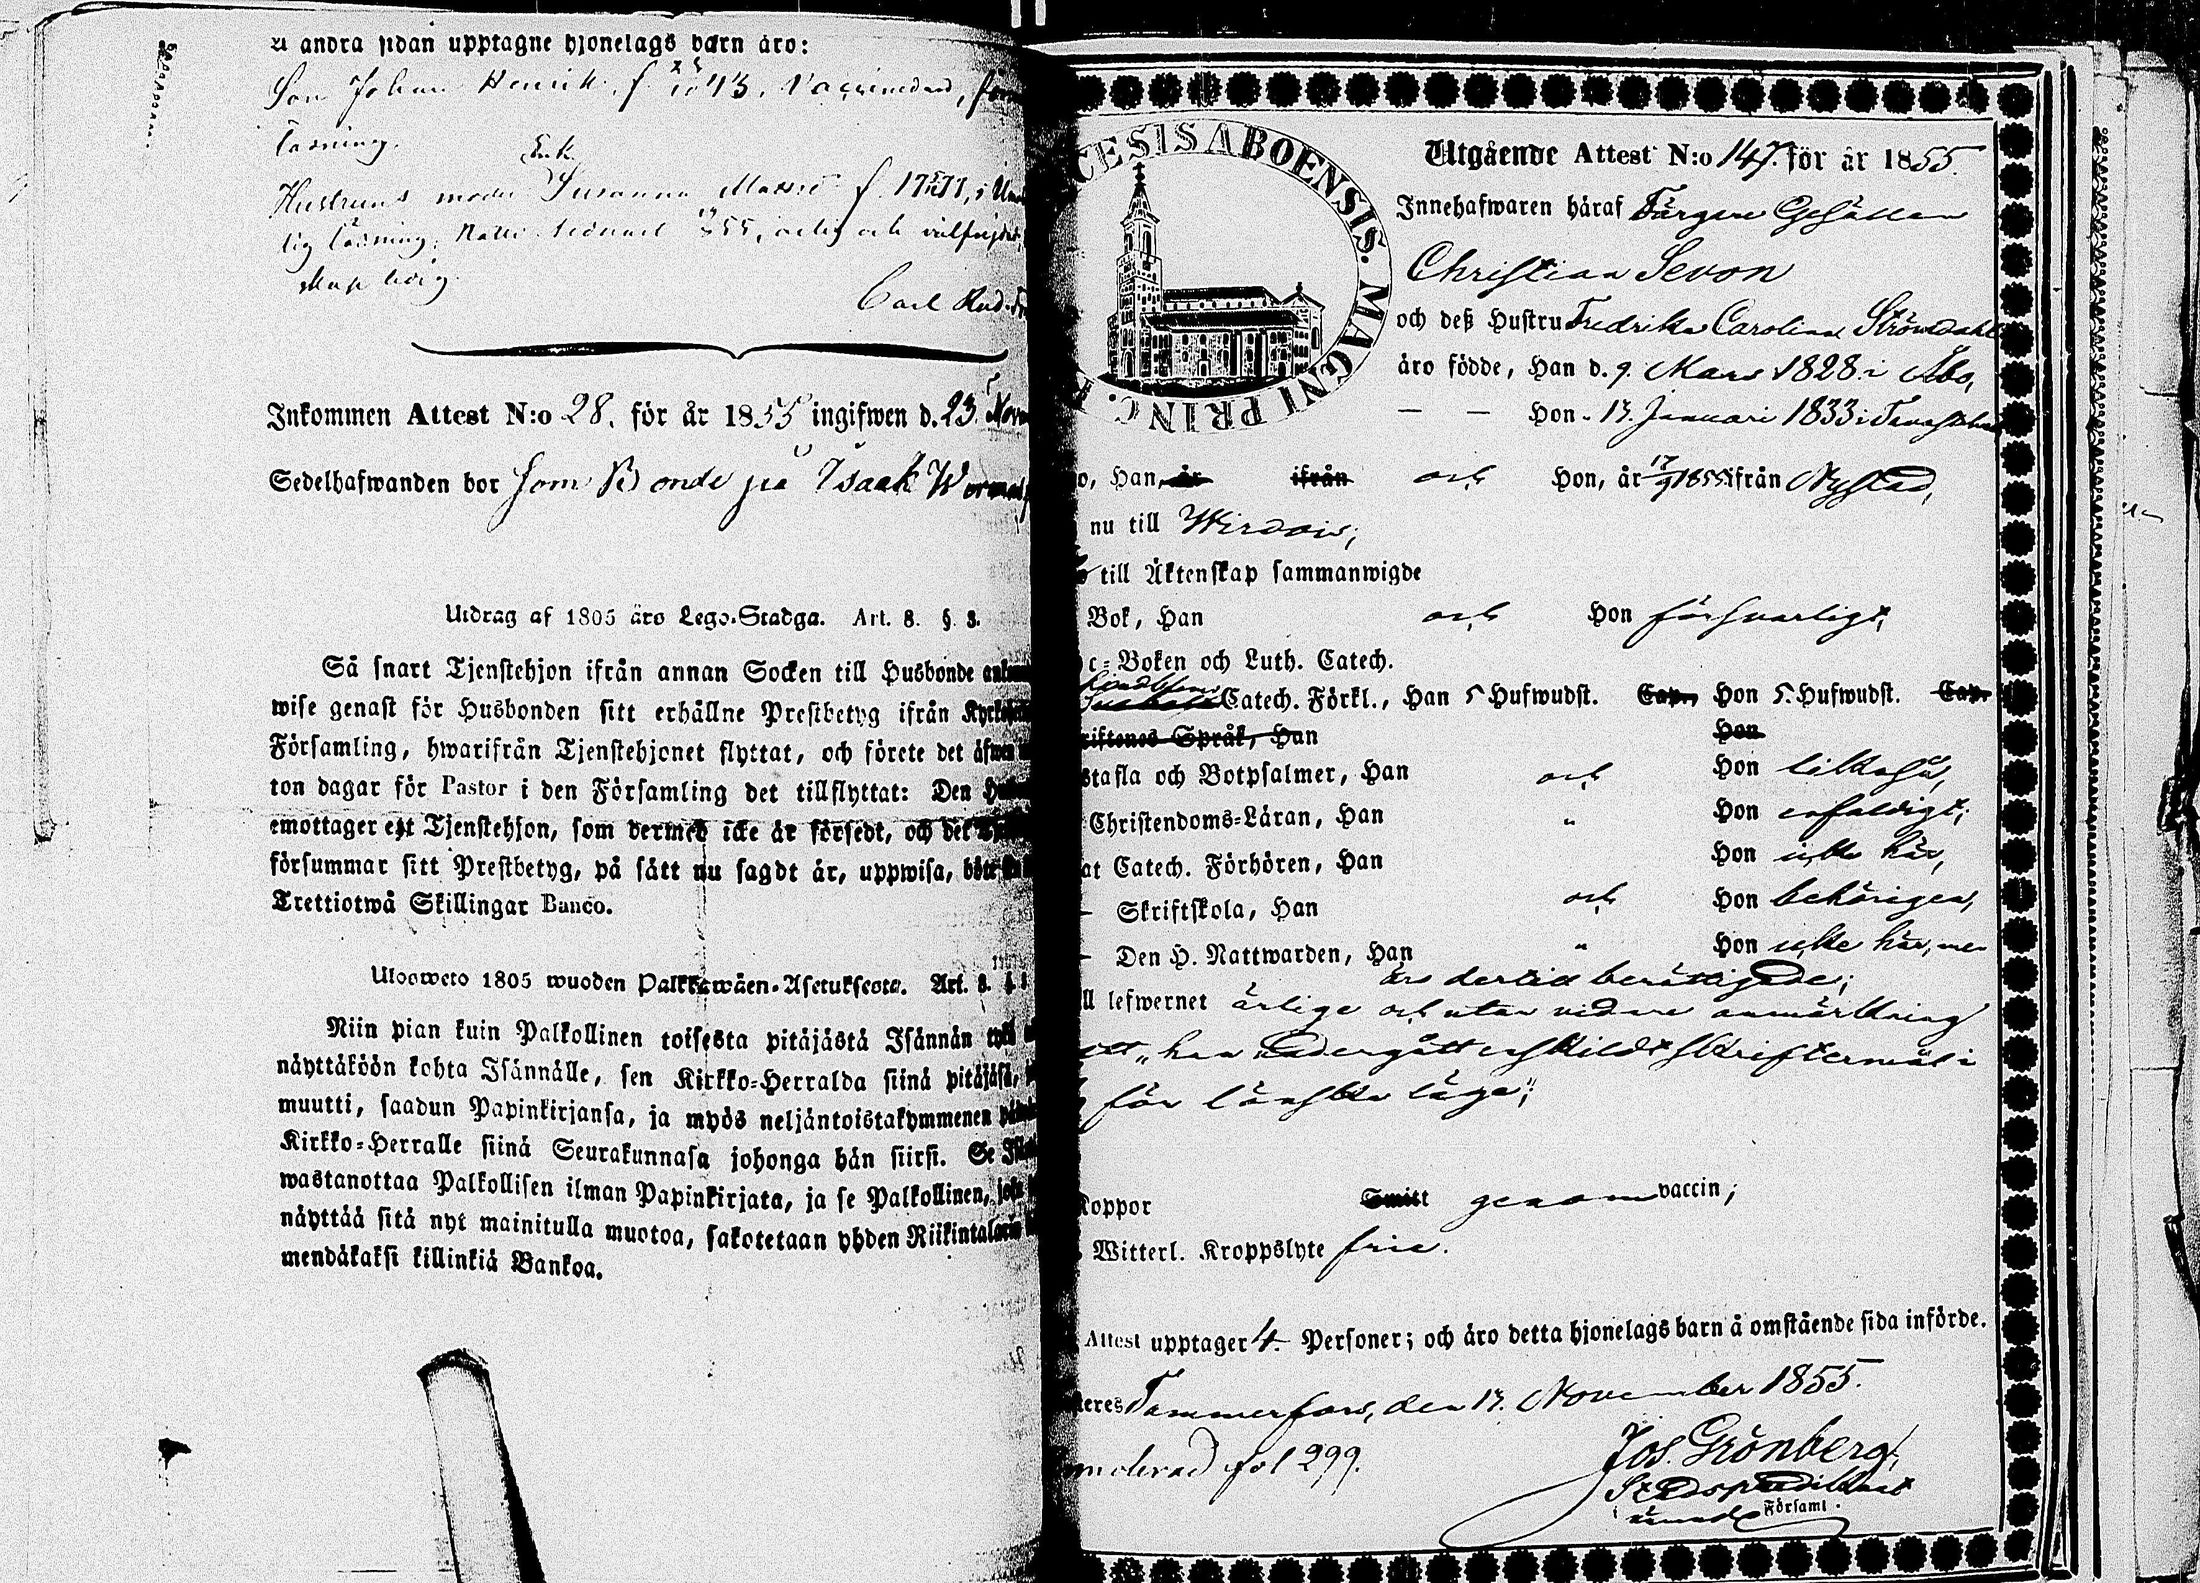 å andra sidan upptagne hjonelags barn äro:
Son Johan Henrik, f. 43. Vaccinerad,
läsning.
Enk.
Hustruns moder Susanna f. i
lig läsning,
Carl
Inkommen Attest N:o 28. för år 1855 ingifwen d. 23 Nov
Sedelhafwanden bor som Bonde på Isaak
Utdrag af 1805 års Lego-Stadga. Art. 8. §. 3.
Så snart Tjenstehjon ifrån annan Socken till Husbonde
wise genast för Husbonden sitt erhållne Prestbetyg ifrån
Församling, hwarifrån Tjenstehjonet flyttat, och förete det
ton dagar för Pastor i den Församling det tillflyttat: Den
emottager ett Tjenstehjon, som dermed icke är försedt, och det
försummar sitt Prestbetyg, på sätt nu sagdt är, uppwisa, böte
Trettiotwå Skillingar Banco.
Ulosweto 1805 wuoden Palkkawäen-Asetuksesta. Art. 8. §.
Niin pian kuin Palkollinen toisesta pitäjästä Isännän tykö
näyttäköön kohta Isännälle, sen Kirkko-Herralda siinä pitäjäsä,
muutti, saadun Papinkirjansa, ja myös neljäntoistakymmenen
Kirkko-Herralle siinä Seurakunnasa johonga hän siirsi. Se
wastanottaa Palkollisen ilman Papinkirjata, ja se Palkollinen,
näyttää sitä nyt mainitulla muotoa, sakotetaan yhden Riikintalarin
mendäkaksi killinkiä Bankoa.
CESIS ABOENSIS. MAGNI PRINC.
Utgående Attest N:o 147. för år 1855.
Innehafwaren häraf Färgare Gesällen
Christian Sevon
och deß Hustru Fredrika Carolina Ströndahl
äro födde, Han d. 9. Mars 1828 i Åbo,
— — Hon - 13. Januari 1833 i
o, Han, är ifrån och Hon, är 17/9 1855 ifrån Nystad,
nu till Wirdois,
till Äktenskap sammanwigde
Bok, Han och Hon försvarligt,
c-Boken och Luth. Catech.
Catech. Förkl., Han 5 Hufwudst. Cap., Hon 5. Hufwudst. Cap.
riftenes Språk, Han Hon
stafla och Botpsalmer, Han och Hon likaså,
Christendoms-Läran, Han " Hon enfaldigt,
at Catech. Förhören, Han Hon icke här,
- Skriftskola, Han och Hon behörigen,
- Den H. Nattwarden, Han " Hon icke här, men
äro dertill berättigade;
ll lefwernet ärlige och utan vidare anmärkning
att "han undergått enskildt skriftermål i
för lönska läge";
Koppor Smitt genom vaccin;
Witterl. Kroppslyte frie.
Attest upptager 4. Personer; och äro detta hjonelags barn å omstående sida införde.
teres Tammerfors, den 13. November 1855.
noterad fol 299.
Jos. Grönberg,
Stadspredikant
i Församl.